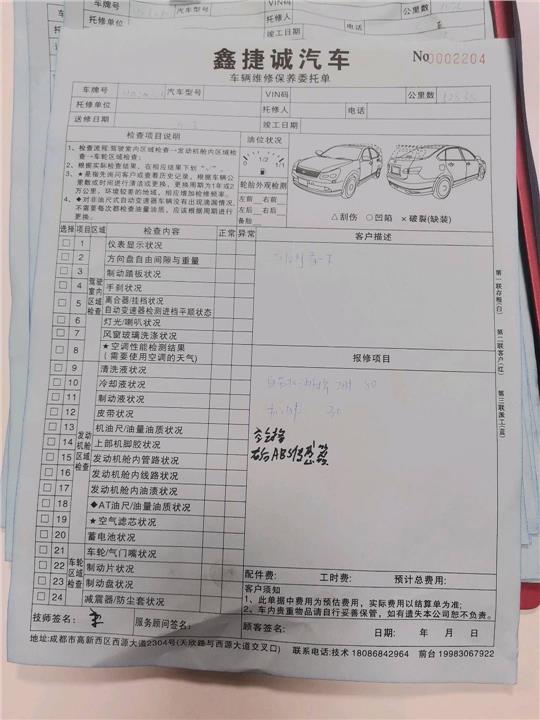 车牌号 汽车型号 VIN码 公里数
托修人 电话
竣工日期
鑫捷诚汽车
No 0002204
车辆维修保养委托单
车牌号 汽车型号 VIN码 公里数
托修单位 托修人 电话
送修日期 竣工日期
检查项目说明 油位状况
1、检查流程:驾驶室内区域检查→发动机舱内区域检查→车轮区域检查;
2、根据实际检查结果,在相应结果下划“✓”。
3、★是指先询问客户或查看历史记录,根据车辆公里数或时间进行清洁或更换,更换周期为1年或2万公里,环境较差的地域,相应增加检修频率。
4、◆对非油尺式自动变速器车辆没有出现滴漏情况,不需要每次都检查油量油质,应该根据周期进行更换。
1/2
轮胎外观检测
左前 右前
左后 右后
备胎
△刮伤 ○凹陷 ×破裂(缺装)
选择 项目 区域 检查内容 正常 异常 客户描述
驾驶室内区域检查
1 仪表显示状况
2 方向盘自由间隙与重量
3 制动踏板状况
4 手刹状况
5 离合器/挂档状况
自动变速器检测进档平顺状态
6 灯光/喇叭状况
7 风窗玻璃洗涤状况
8 ★空调性能检测结果
(需要使用空调的天气)
报修项目
发动机舱区域检查
9 清洗液状况
10 冷却液状况
11 制动液状况
12 皮带状况
13 机油尺/油量油质状况
14 上部机脚胶状况
15 发动机舱内管路状况
16 发动机舱内线路状况
17 发动机舱内油渍状况
18 ◆AT油尺/油量油质状况
19 ★空气滤芯状况
20 蓄电池状况
50
30
右后ABS传感器
车轮区域检查
21 车轮/气门嘴状况
22 制动片状况
23 制动盘状况
24 减震器/防尘套状况
配件费: 工时费: 预计总费用:
客户须知
1、此单据中费用为预估费用,实际费用以结算单为准;
2、车内贵重物品请自行妥善保管,如有遗失本公司恕不负责。
技师签名: 服务顾问签名: 顾客签名: 日期: 年 月 日
地址:成都市高新西区西源大道2304号(天欣路与西源大道交叉口) 联系电话:技术 18086842964 前台 19983067922
第一联存根(白) 第二联客户(红) 第三联派工(蓝)